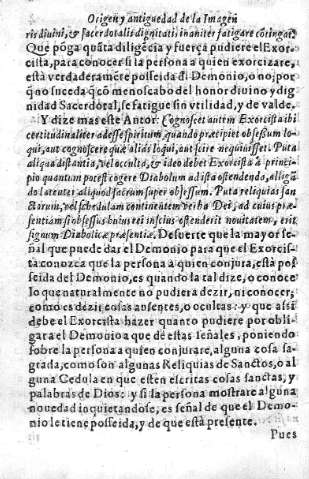 Origen y antiguedad de la Imagen
ris diuini, & sacerdotalis dignitati, inaniter fatigare cōtingat.
Que pōga quāta diligēcia y fuerça pudiere el Exor-
cista, para conocer si la persona a quien exorcizare,
està verdaderamēte posseida del Demonio, o no; por
q̄ no suceda q̄ cō menoscabo del honor diuino y dig
nidad Sacerdotal, se fatigue sin vtilidad, y de valde.
Y dize mas este Autor: Cognoscet autem Exorcista ibi
certitudinaliter adesse spiritum, quando præcipiet obsessum lo-
qui, aut cognoscere quæ aliàs loqui, aut scire nequiuisset. Puta
aliqua distantia, vel occulta, & ideo debet Exorcista à princi-
pio quantum potest cogere Diabolum ad ista ostendenda, alligā
do latenter aliquod sacrum super obsessum. Puta reliquias san
ctorum, vel schedulam continentem verba Dei, ad cuius præ-
sentiam si obsessus huius rei inscius ostenderit nouitatem, erit
signum Diabolicæ præsentiæ. De suerte que la mayor se-
ñal que puede dar el Demonio para que el Exorcis-
ta conozca que la persona a quien conjura, està pos-
seida del Demonio, es quando la tal dize, o conoce
lo que naturalmente no pudiera dezir, ni conocer;
como es dezir cosas ausentes, o ocultas: y que assi
debe el Exorcista hazer quanto pudiere por obli-
gar al Demonio a que dè estas señales, poniendo
sobre la persona a quien conjurare, alguna cosa sa-
grada, como son algunas Reliquias de Sanctos, o al
guna Cedula en que estèn escritas cosas sanctas, y
palabras de Dios: y si la persona mostrare alguna
nouedad inquietandose, es señal de que el Demo-
nio le tiene posseida, y de que està presente.
Pues